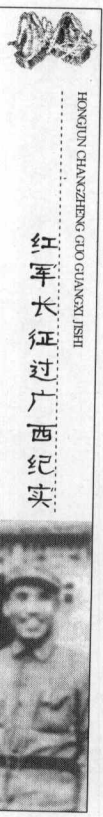 HONGJUN CHANGZHENG GUO GUANGXI JISHI
红军长征过广西纪实